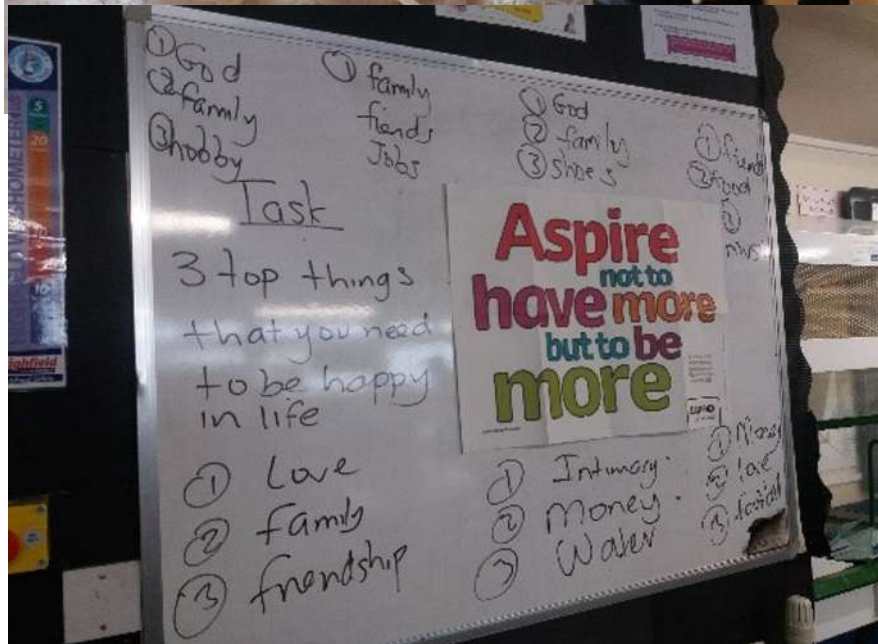 ① God
② family
③ hobby
① family
fiends
Jobs
① God
② family
③ shoes
① friends
② food
③
Task
3 top things
that you need
to be happy
in life
Aspire
not to
have more
but to be
more
① Love
② family
③ friendship
① Intimacy.
② Money.
③ Water
① Money
② love
③
5
20
10